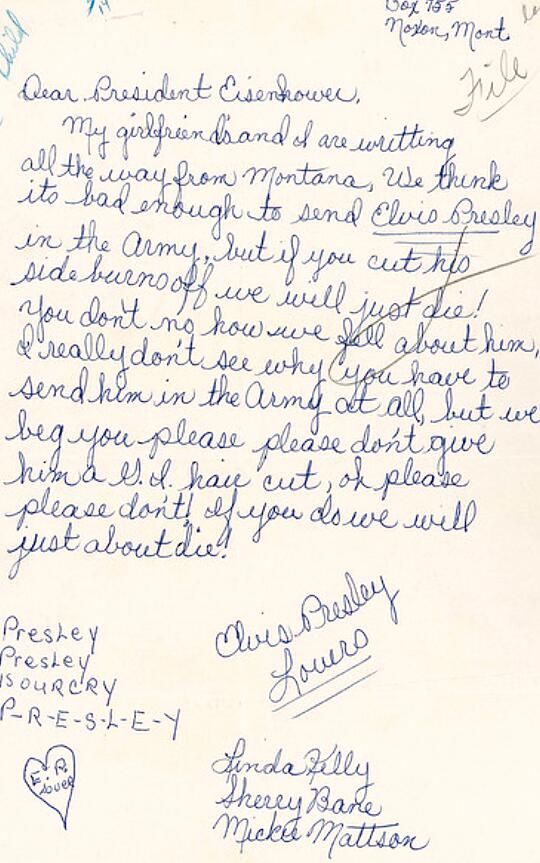 Child
Box 755
Noxon, Mont
File
Dear President Eisenhower,
My girlfriend's and I are writting
all the way from Montana, We think
its bad enough to send Elvis Presley
in the Army, but if you cut his
side burns off we will just die!
You don't no how we fell about him,
I really don't see why you have to
send him in the Army at all, but we
beg you please please don't give
him a G.I. hair cut, oh please
please don't! If you do we will
just about die!
Elvis Presley
Lovers
Presley
Presley
IS OUR CRY
P-R-E-S-L-E-Y
E. P.
Lover
Linda Kelly
Sherry Bane
Mickie Mattson